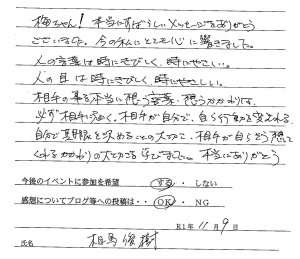 梅ちゃん! 本当にすばらしいメッセージをありがとう
ございました。今の私にとても心に響きました。
人の言葉は時にきびしく、時にやさしい。
人の目は時にきびしく、時にやさしい。
相手の事を本当に想う言葉・想うかかわりは、
必ず相手に届く。相手が自分で、自ら行動を変えれる。
自分で見
を求めることの大切さ、相手が自らそう想って
くれるかかわりの大切さを学びました。本当にありがとう
今後のイベントに参加を希望 する・しない
感想についてブログ等への投稿は・・ OK ・ NG
R1年 11月 9日
氏名 相馬俊樹